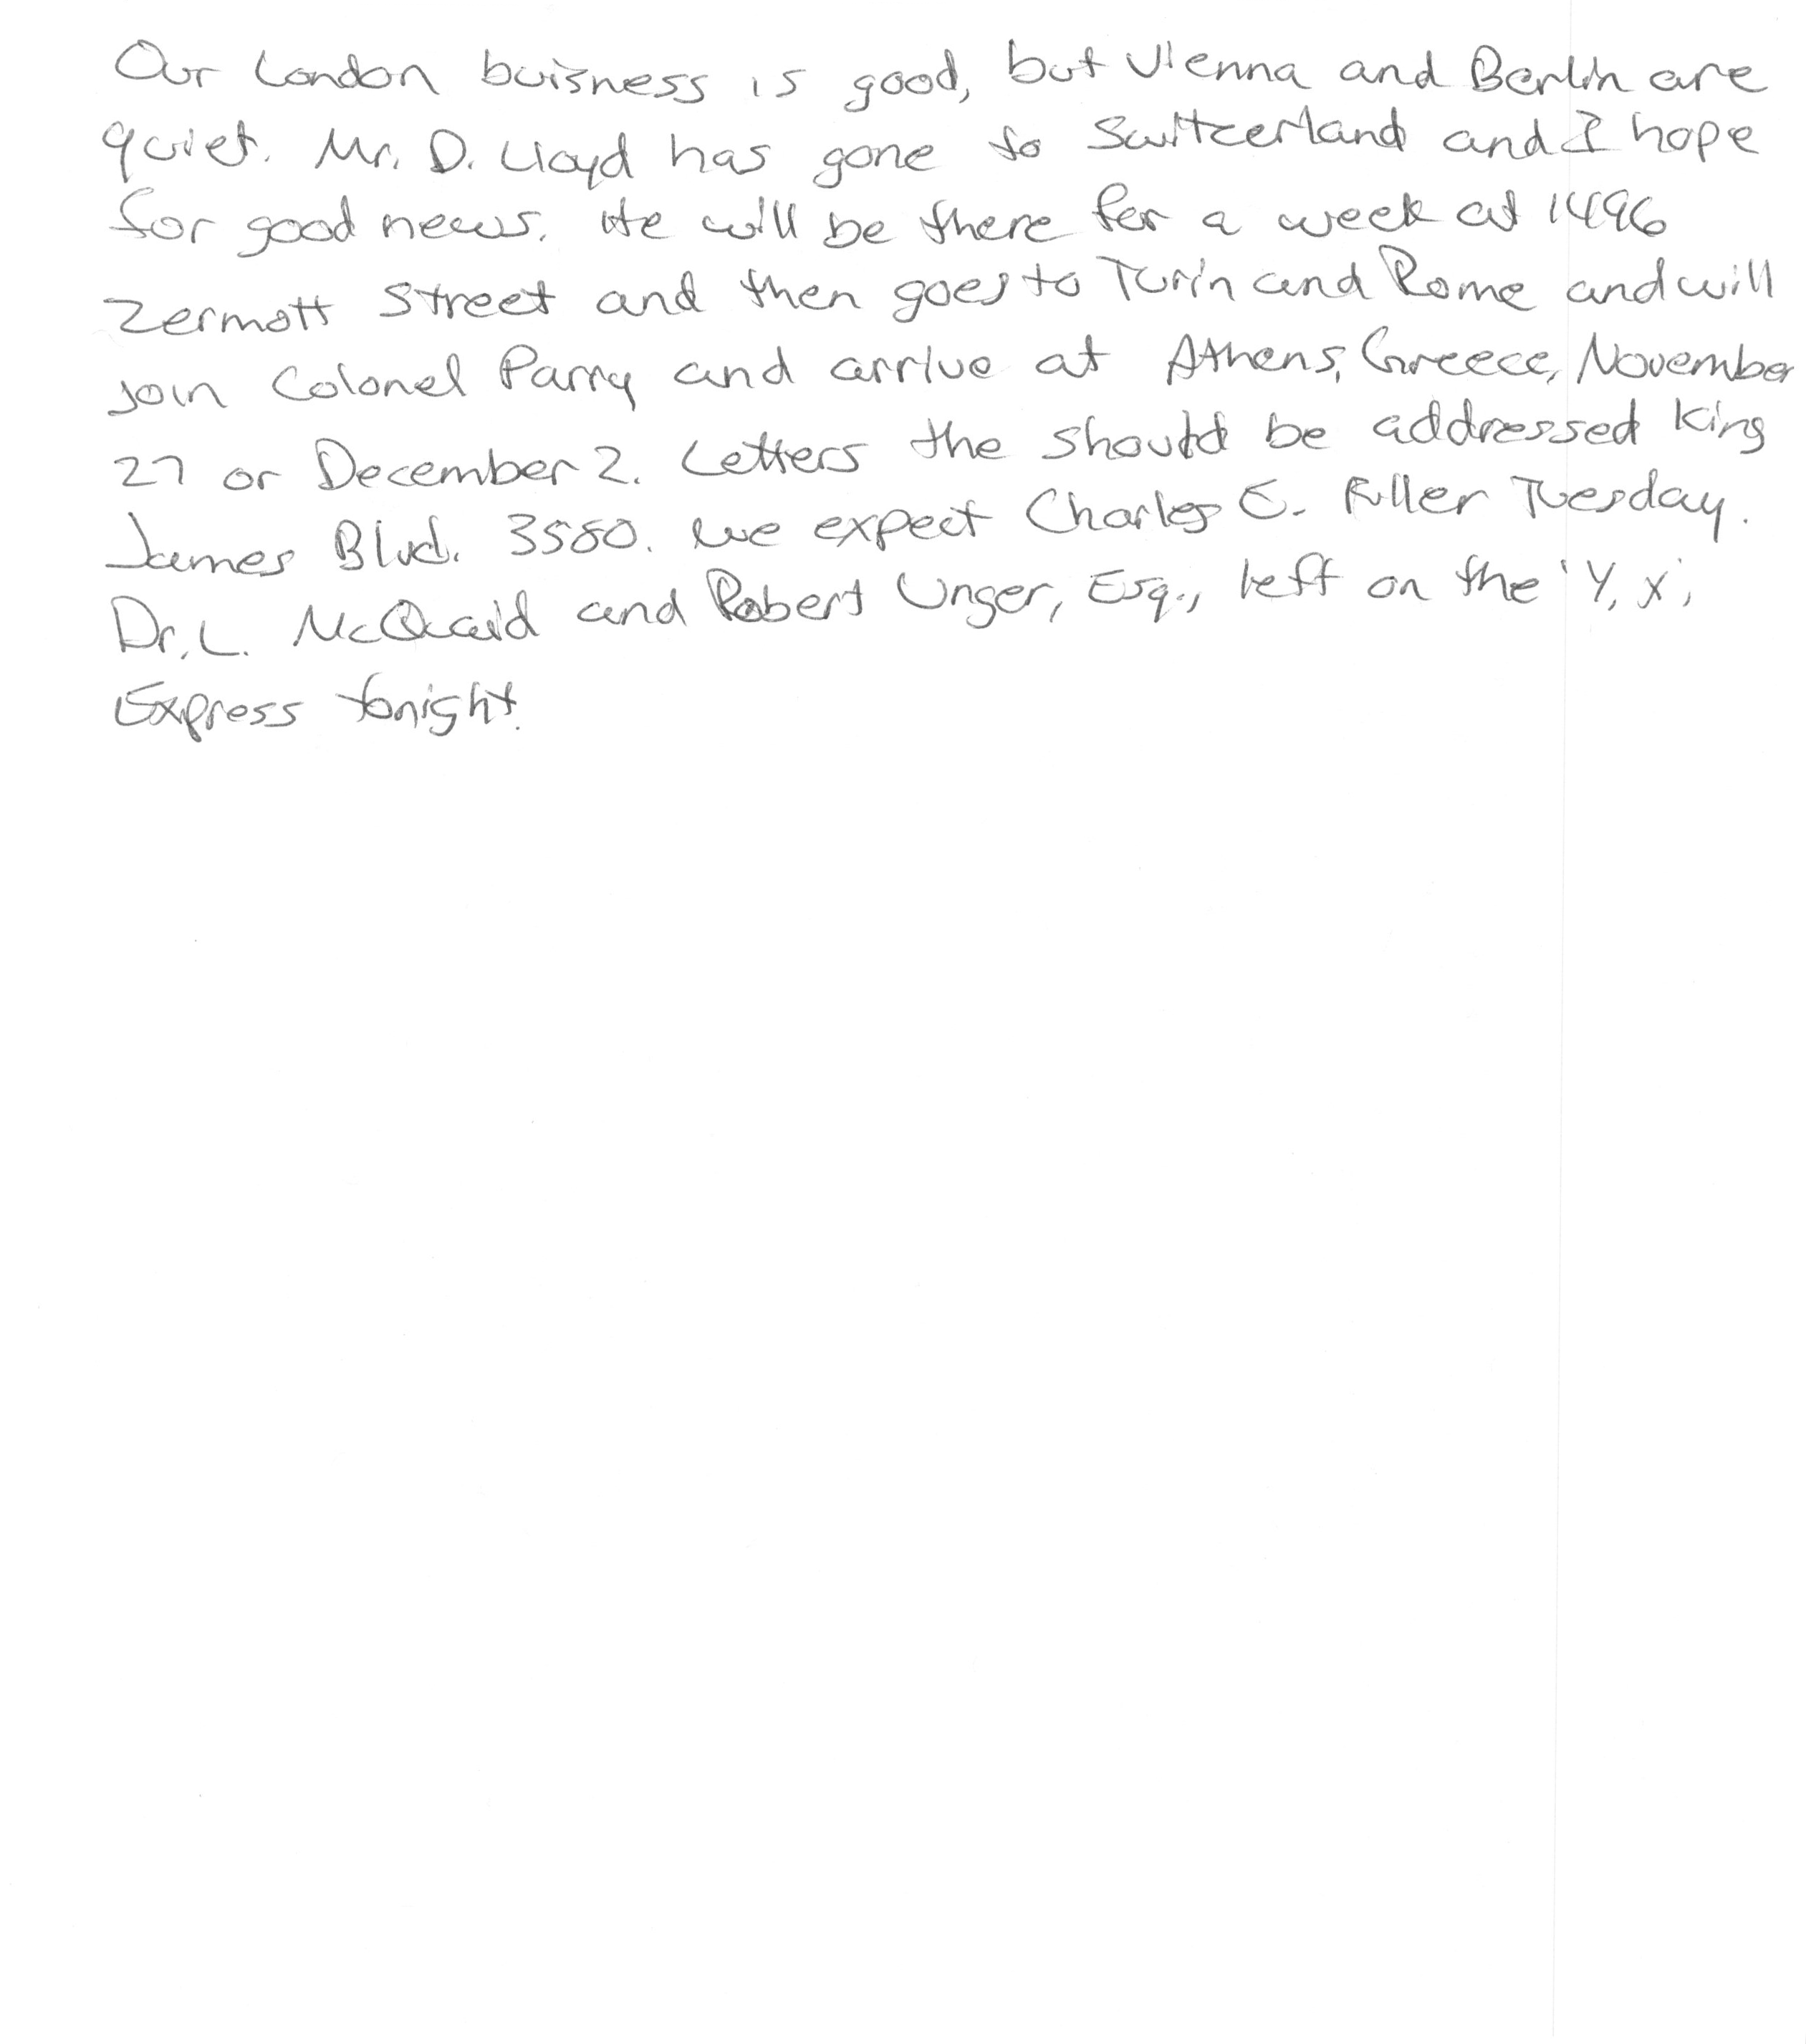 Our London buisness is good, but Vienna and Berlin are
quiet. Mr. D. Lloyd has gone to Switzerland and I hope
for good news. He will be there for a week at 1496
Zermott Street and then goes to Turin and Rome and will
join Colonel Parry and arrive at Athens, Greece, November
27 or December 2. Letters the should be addressed King
James Blvd. 3580. We expect Charles E. Fuller Tuesday.
Dr. L. McQuaid and Robert Unger, Esq., left on the 'Y, X',
Express tonight.